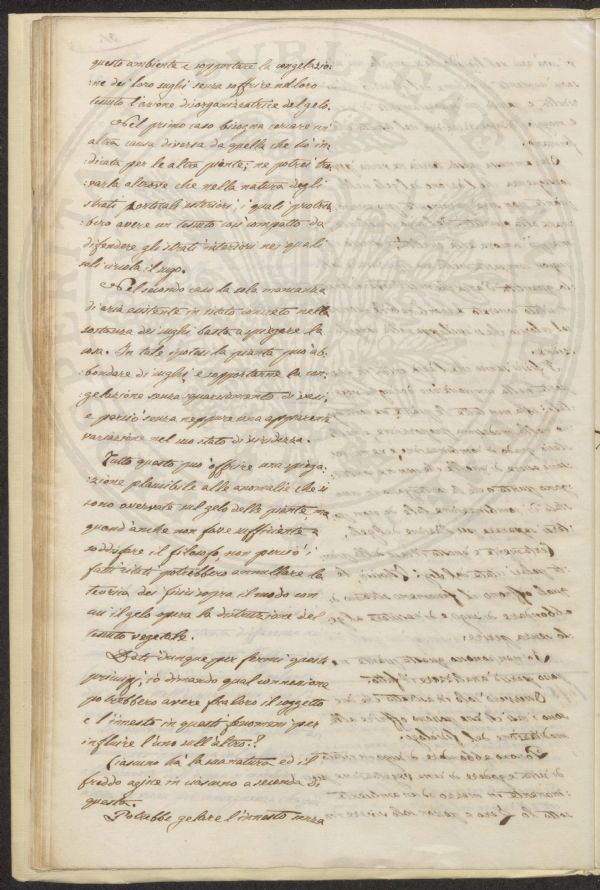 questo ambiente e sopportare la congelazio:
:ne dei loro sughi senza soffrire nel loro
tessuto l'azione disorganizzatrice del gelo.
Nel primo caso bisogna cercare un'
altra causa diversa da quella che ho in:
dicata per le altre piante; ne potrei tro
:varla altrove che nella natura degli
strati corticali esteriori, i quali potreb
:bero avere un tessuto così compatto da
difendere gli strati interiori nei quali
soli circola il sugo.
Nel secondo caso la sola mancanza
di aria esistente in istato concreto nella
sostanza dei sughi basta a spiegare la
cosa. In tale ipotesi la pianta può ab
:bondare di sughi, e sopportarne la con
gelazione senza squarciamento di vasi,
e perciò senza neppure una apparente
variazione nel suo stato di viridezza.
Tutto questo può offrire una spiega:
:zione plausibile alle anomalie che si
sono osservate sul gelo delle piante, ma
quand'anche non fosse sufficiente a
soddisfare il filosofo non perciò i
fatti citati potrebbero annullare la
teorica dei fisici sopra il modo con
cui il gelo opera la distruzione del
tessuto vegetale.
Dati dunque per fermi questi
principj, io dimando qual connessione
potrebbero avere fra loro il soggetto
e l'innesto in questi fenomeni per
influire l'uno sull'altro?
Ciascuno ha la sua natura ed il
freddo agisce in ciascuno a seconda di
questa.
Potrebbe gelare l'innesto senza